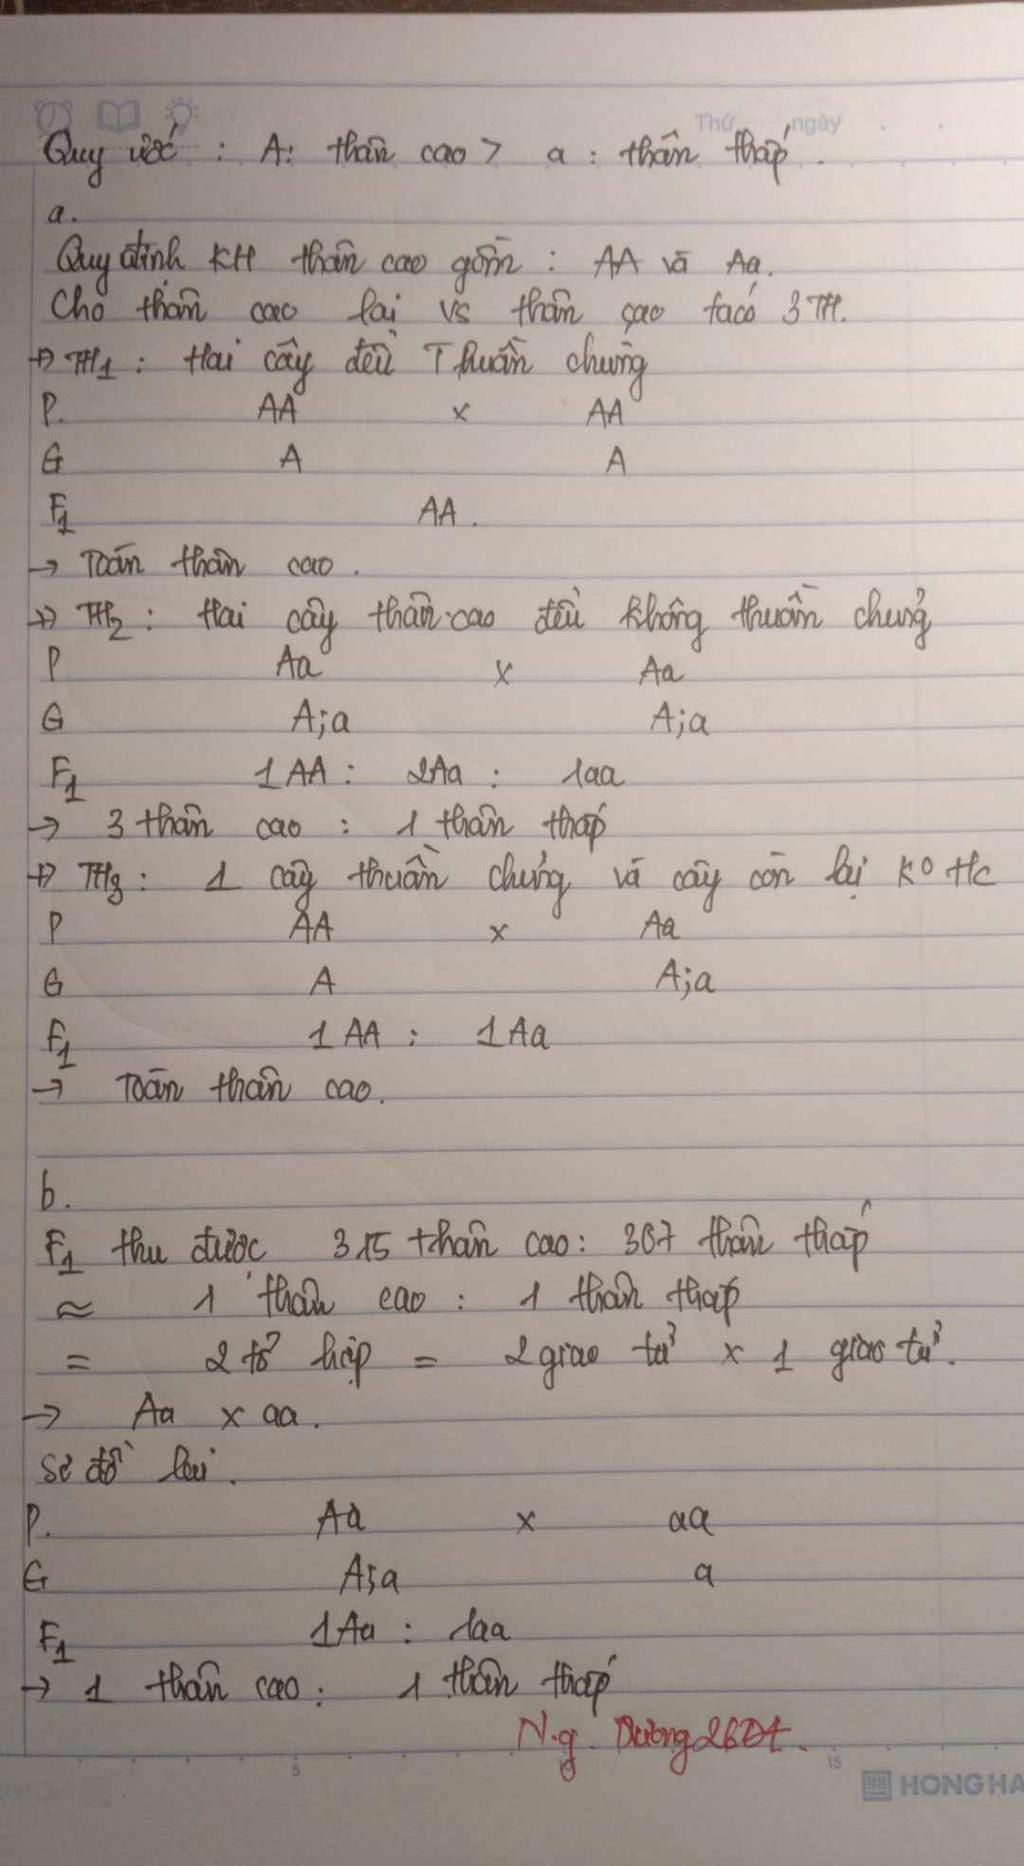 Thứ ngày
Quy ước : A: thân cao > a : thân thấp.
a.
Quy định KH thân cao gồm : AA và Aa.
Cho thân cao lai vs thân cao ta có 3 TH.
+> TH1 : Hai cây đều Thuần chủng
P. AA x AA
G A A
F1 AA.
-> Toàn thân cao.
+> TH2 : Hai cây thân cao đều không thuần chủng
P Aa x Aa
G A;a A;a
F1 1 AA : 2Aa : 1aa
-> 3 thân cao : 1 thân thấp
+> TH3 : 1 cây thuần chủng và cây còn lại K° tc
P AA x Aa
G A A;a
F1 1 AA : 1 Aa
-> Toàn thân cao.
b.
F1 thu được 315 thân cao : 307 thân thấp
≈ 1 thân cao : 1 thân thấp
= 2 tổ hợp = 2 giao tử x 1 giao tử.
-> Aa x aa.
Sơ đồ lai.
P. Aa x aa
G A;a a
F1 1Aa : 1aa
-> 1 thân cao : 1 thân thấp
N.g. Dương
5 15
HONG HA